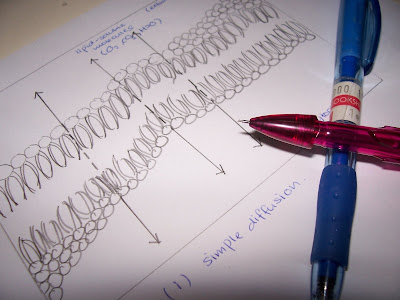 lipid-soluble
molecules
(O₂, CO₂, H₂O)
(1) simple diffusion.
00
BOOKSH